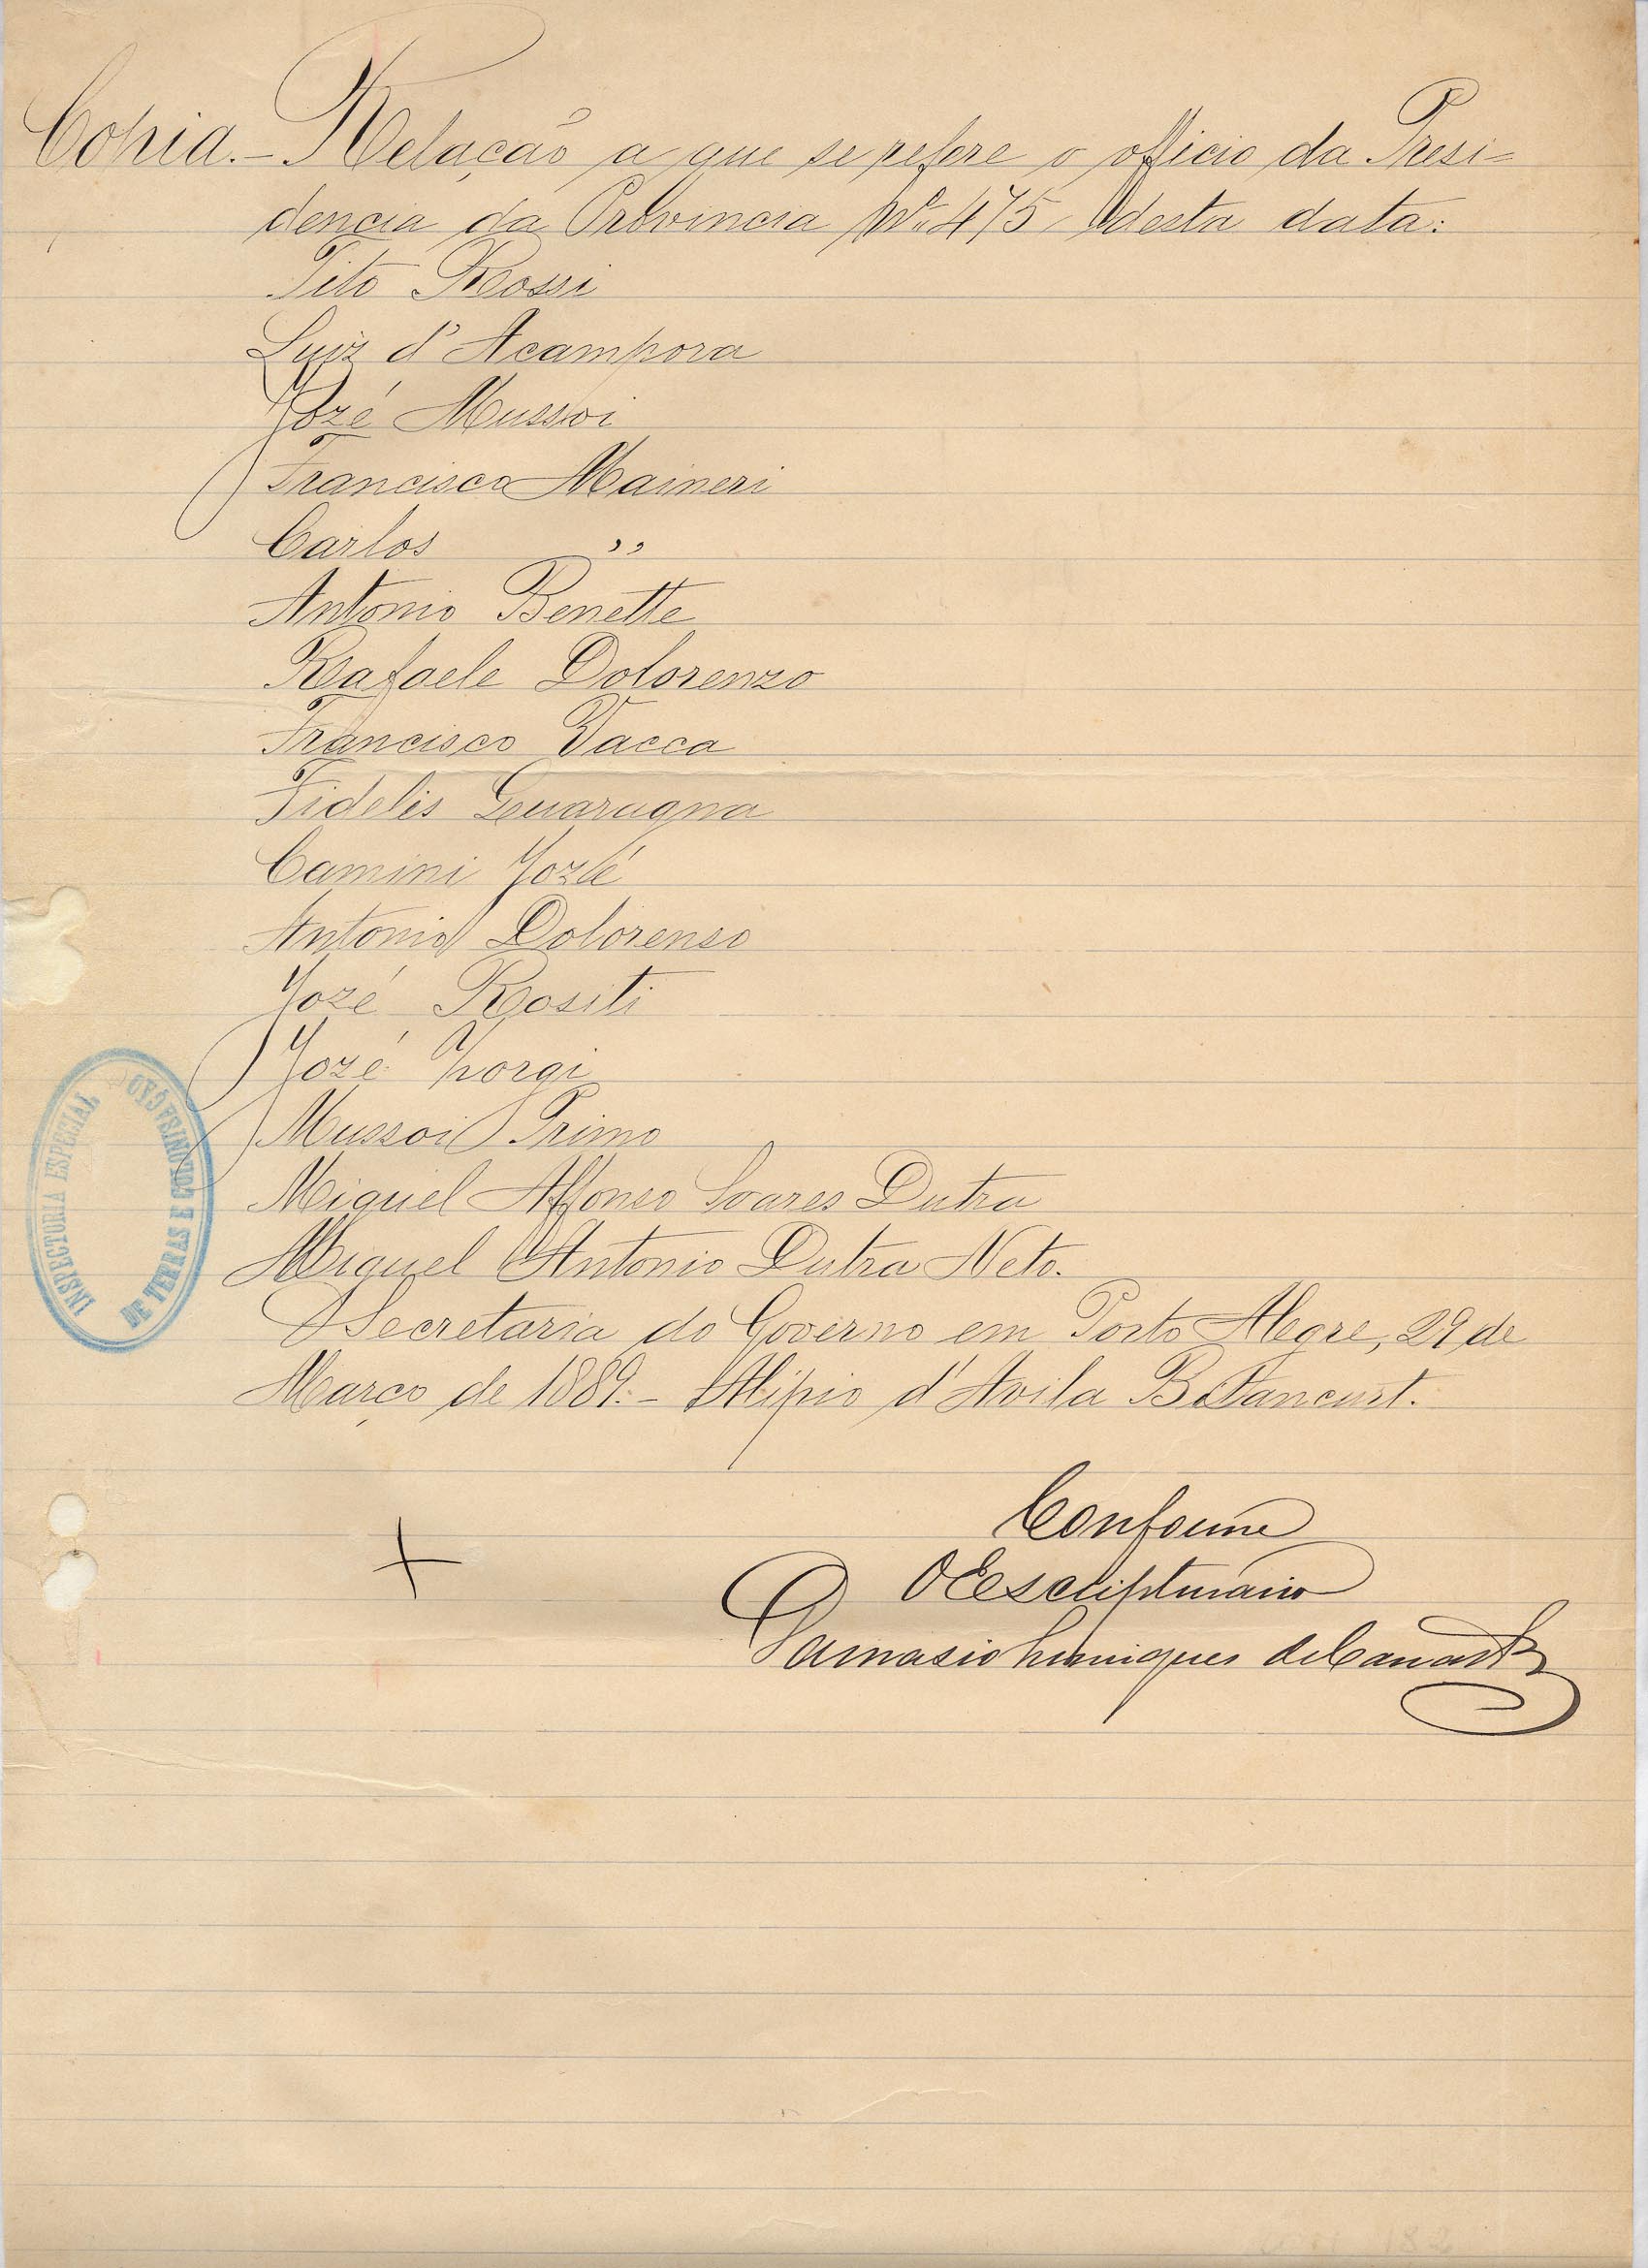 Copia.- Relação a que se refere o officio da Presi-
dencia da Provincia Nº 475 desta data:
Tito Rossi
Luiz d'Acampora
Jozé Mussoi
Francisco Maineri
Carlos "
Antonio Benette
Rafaele Dolorenzo
Francisco Vacca
Fidelis Guaragna
Camini Jozé
Antonio Dolorenso
Jozé Rositi
Jozé
Mussoi Primo
Miguel Affonso Soares Dutra
Miguel Antonio Dutra Neto.
Secretaria do Governo em Porto Alegre, 29 de
Março de 1889.- Alipio d'Avila Betancurt.
Conforme
O Escripturario
Damasio Henriques de
INSPECTORIA ESPECIAL
DE TERRAS E COLONISAÇÃO